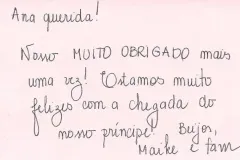 Ana querida!
Nosso MUITO OBRIGADO mais
uma vez! Estamos muito
felizes com a chegada do
nosso príncipe! Beijos,
Maike e fam